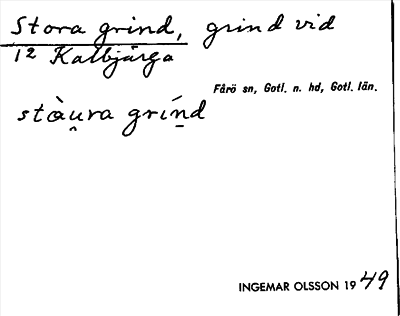 Stora grind, grind vid
12 Kalbjärga
Fårö sn, Gotl. n. hd, Gotl. län.
stàu̯ra grín̠d
INGEMAR OLSSON 1949